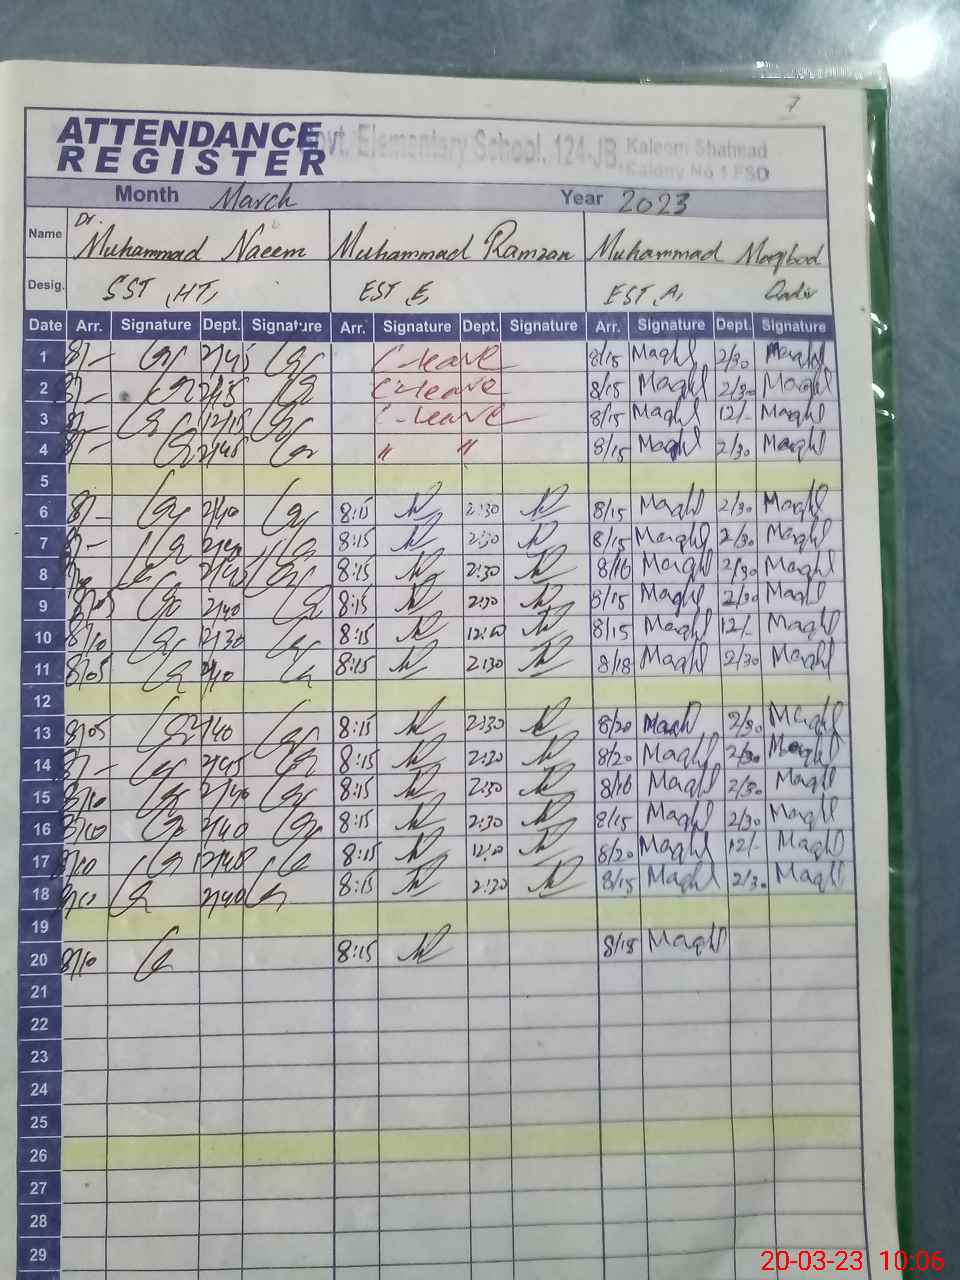 7
ATTENDANCE
REGISTER
Govt. Elementary School, 124-JB, Kaleem Shaheed
Colony No 1 FSD
Month March Year 2023
Name Dr. Muhammad Naeem Muhammad Ramzan Muhammad Maqbool
Desig. SST, HT, EST, E, EST, A,
Date Arr. Signature Dept. Signature Arr. Signature Dept. Signature Arr. Signature Dept. Signature
1 8/- 2/45 C-leave 8/15 Maqbl 2/30 Maqbl
2 8/- C-leave 8/15 Maqbl 2/30 Maqbl
3 8/- 12/15 C-leave 8/15 Maqbl 12/- Maqbl
4 8/- 2/45 " " 8/15 Maqbl 2/30 Maqbl
5
6 8/- 2/40 8:15 2:30 8/15 Maqbl 2/30 Maqbl
7 8/- 2/40 8:15 2:30 8/15 Maqbl 2/30 Maqbl
8 8:15 2:30 8/16 Maqbl 2/30 Maqbl
9 8/05 2/40 8:15 2:30 8/15 Maqbl 2/30 Maqbl
10 8/10 12/30 8:15 12:00 8/15 Maqbl 12/- Maqbl
11 8/05 2/40 8:15 2:30 8/18 Maqbl 2/30 Maqbl
12
13 8/05 2/40 8:15 2:30 8/20 Maqbl 2/30 Maqbl
14 8/- 2/45 8:15 2:30 8/20 Maqbl 2/30 Maqbl
15 8/10 2/40 8:15 2:30 8/16 Maqbl 2/30 Maqbl
16 8/10 2/40 8:15 2:30 8/15 Maqbl 2/30 Maqbl
17 8/10 8:15 8/20 Maqbl 12/- Maqbl
18 8/10 2/40 8:15 2:30 8/15 Maqbl 2/30 Maqbl
19
20 8/10 8:15 8/15 Maqbl
21
22
23
24
25
26
27
28
29
20-03-23 10:06